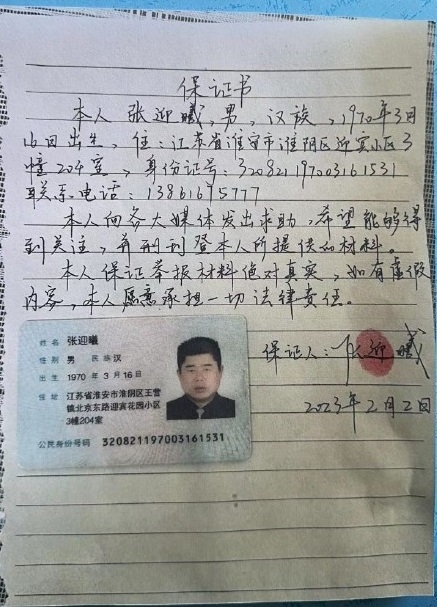 保证书
本人张迎曦,男,汉族,1970年3月
16日出生,住:江苏省淮安市淮阴区迎宾小区3
幢204室,身份证号:320821197003161531
联系电话:13861695777
本人向各大媒体发出求助,希望能够得
到关注,并刊登本人所提供的材料。
本人保证举报材料绝对真实,如有虚假
内容,本人愿意承担一切法律责任。
保证人:张迎曦
2023年2月2日
姓名 张迎曦
性别 男 民族 汉
出生 1970年3月16日
住址 江苏省淮安市淮阴区王营
镇北京东路迎宾花园小区
3幢204室
公民身份号码 320821197003161531